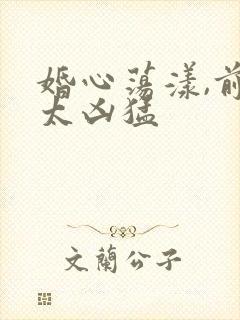 婚心荡漾,前
太凶猛
文蘭公子